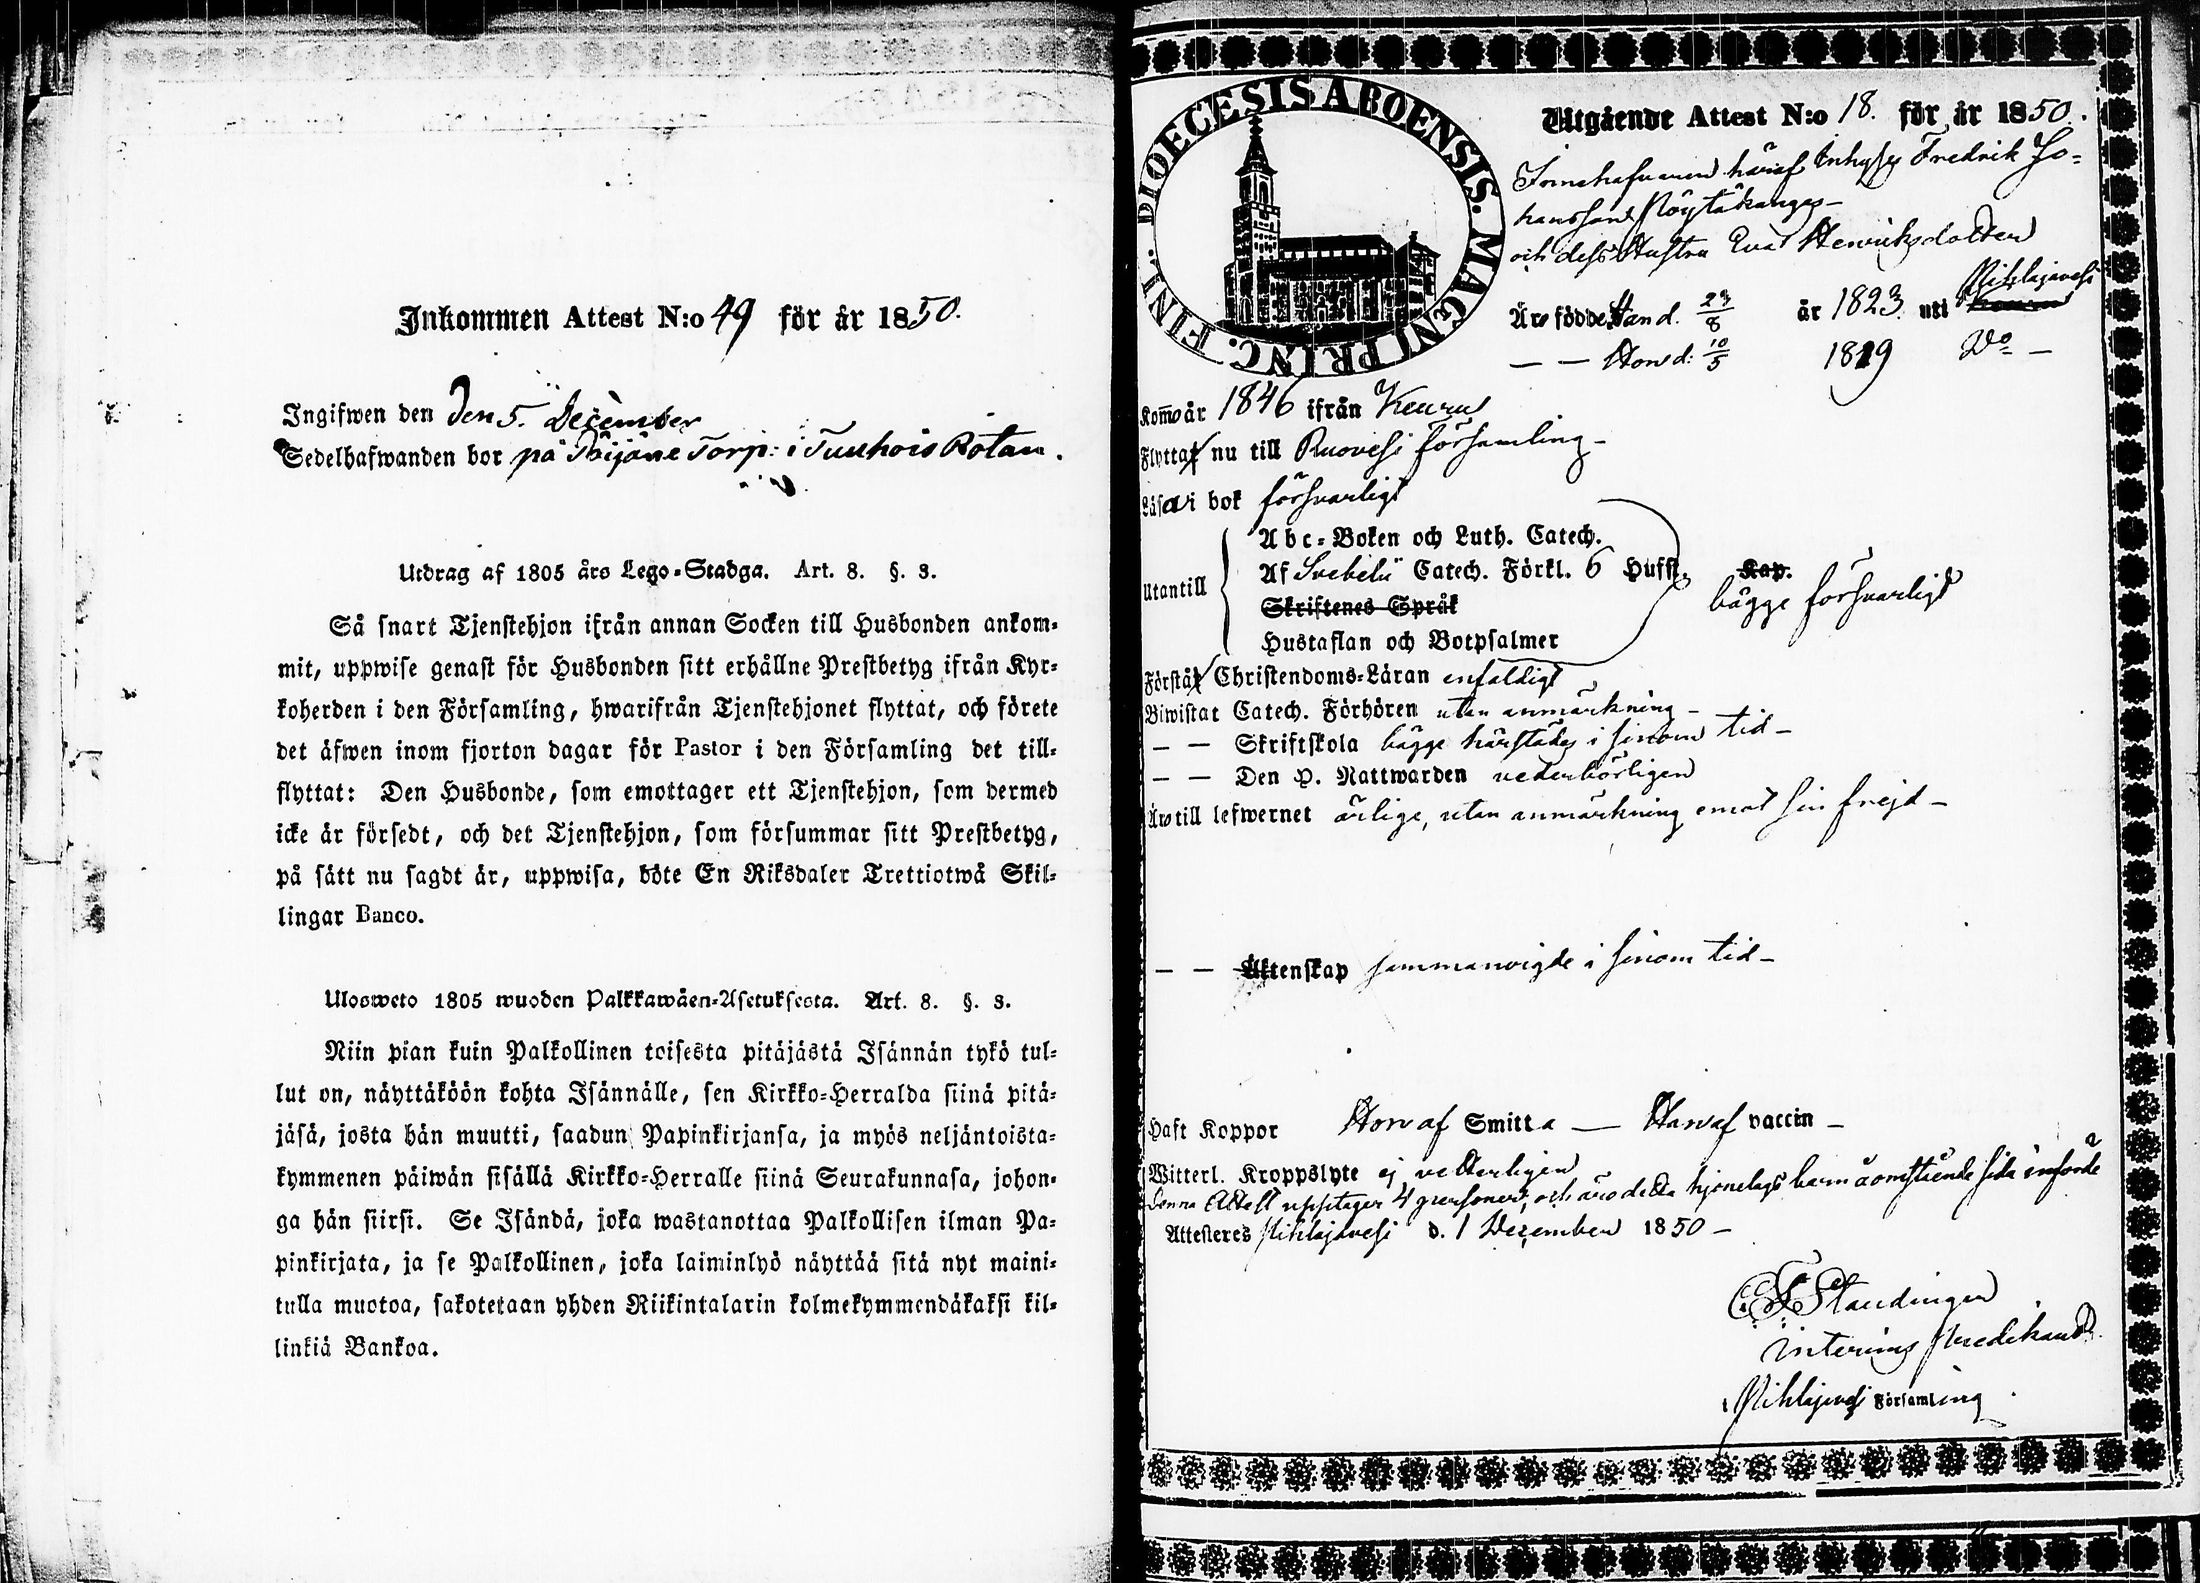 Inkommen Attest N:o 49 för år 1850.
Ingifwen den den 5. December
Sedelhafwanden bor på Päijäne Torp: i Tuuhois Rotan.
Utdrag af 1805 års Lego-Stadga. Art. 8. §. 3.
Så snart Tjenstehjon ifrån annan Socken till Husbonden ankom-
mit, uppwise genast för Husbonden sitt erhållne Prestbetyg ifrån Kyr-
koherden i den Församling, hwarifrån Tjenstehjonet flyttat, och förete
det äfwen inom fjorton dagar för Pastor i den Församling det till-
flyttat: Den Husbonde, som emottager ett Tjenstehjon, som dermed
icke är försedt, och det Tjenstehjon, som försummar sitt Prestbetyg,
på sätt nu sagdt är, uppwisa, böte En Riksdaler Trettiotwå Skil-
lingar Banco.
Ulosweto 1805 wuoden Palkkawäen-Asetuksesta. Art. 8. §. 3.
Niin pian kuin Palkollinen toisesta pitäjästä Isännän tykö tul-
lut on, näyttäköön kohta Isännälle, sen Kirkko-Herralda siinä pitä-
jäsä, josta hän muutti, saadun Papinkirjansa, ja myös neljäntoista-
kymmenen päiwän sisällä Kirkko-Herralle siinä Seurakunnasa, johon-
ga hän siirsi. Se Isändä, joka wastanottaa Palkollisen ilman Pa-
pinkirjata, ja se Palkollinen, joka laiminlyö näyttää sitä nyt maini-
tulla muotoa, sakotetaan yhden Riikintalarin kolmekymmendäkaksi kil-
linkiä Bankoa.
DIOECESIS ABOENSIS. MAGNI PRINC. FINL.
Utgående Attest N:o 18. för år 1850.
Innehafvaren häraf Inhyses Fredrik Jo-
hansson Köytäkangas-
och dess Hustru Eva Henriksdotter
Äro födde, Han d. 23/8 år 1823 uti Pihlajavesi
— — Hon d: 10/5 1819 Do —
Kommo år 1846 ifrån Keuru
Flytta nu till Ruovesi församling-
Läsa i bok försvarligt
Utantill
Abc-Boken och Luth. Catech.
Af Svebelii Catech. Förkl. 6 Hufst. Kap.
bägge försvarligt
Skriftenes Språk
Hustaflan och Botpsalmer
Förstå Christendoms-Läran enfaldigt
Biwistat Catech. Förhören utan anmärkning-
— — Skriftskola bägge härstädes i sinom tid-
— — Den H. Nattwarden vederbörligen
Äro till lefwernet ärlige, utan anmärkning emot sin frejd-
— — Äktenskap sammanvigde i sinom tid-
Haft Koppor Hon af Smitta — Han af vaccin —
Witterl. Kroppslyte ej vetterligen
Denna Attest upptager 4 personer, och äro detta hjonelags barn å omstående sida införde
Attesteres Pihlajavesi d. 1 December 1850-
Standinger
interims Predikant.
i Pihlajavesi Församling